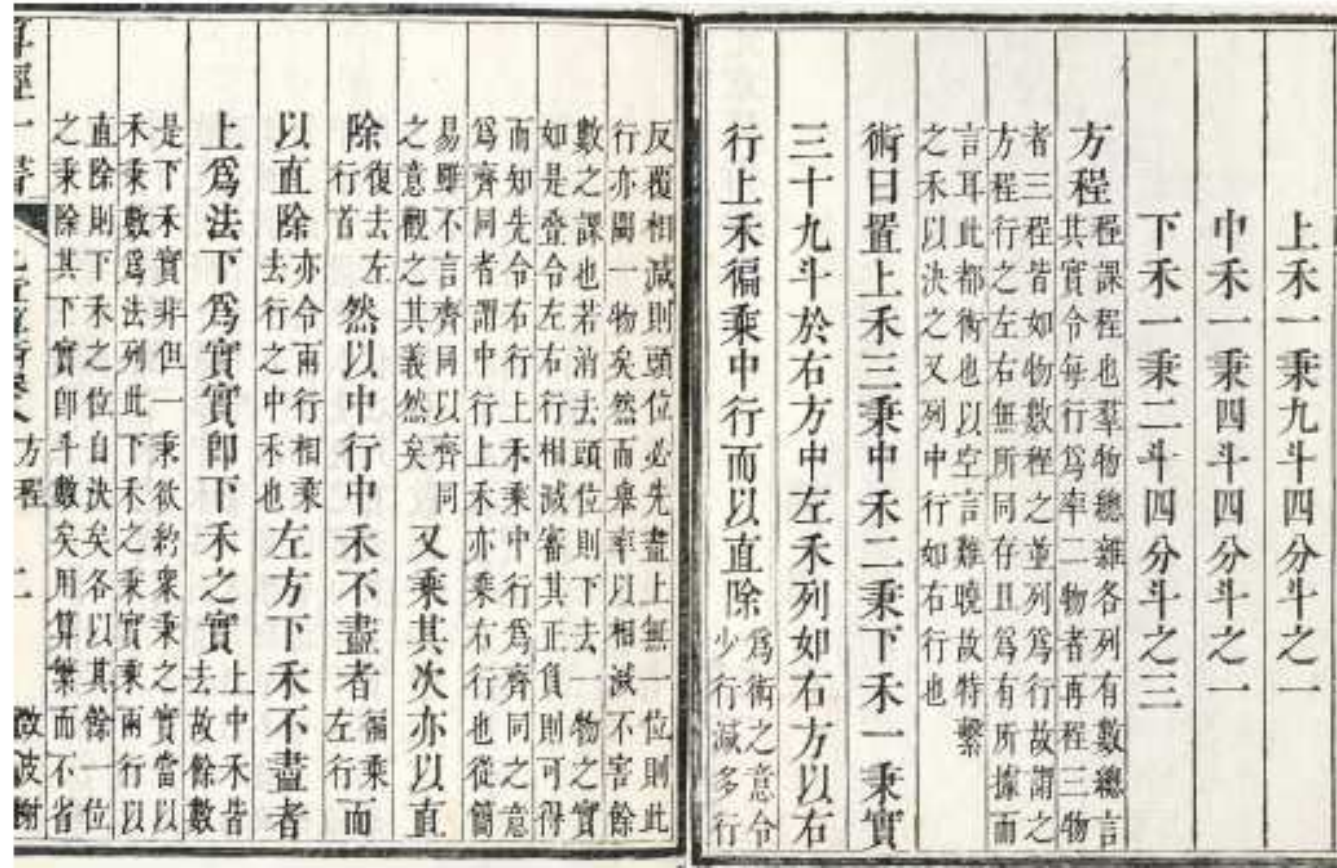 上禾一秉九斗四分斗之一
中禾一秉四斗四分斗之一
下禾一秉二斗四分斗之三
方程程課程也羣物總雜各列有數總言
其實令每行爲率二物者再程三物
者三程皆如物數程之並列爲行故謂之
方程行之左右無所同存且爲有所據而
言耳此都術也以空言難曉故特繫
之禾以決之又列中行如右行也
術曰置上禾三秉中禾二秉下禾一秉實
三十九斗於右方中左禾列如右方以右
行上禾徧乘中行而以直除爲術之意令
少行減多行
反覆相減則頭位必先盡上無一位則此
行亦闕一物矣然而舉率以相減不害餘
數之課也若消去頭位則下去一物之實
如是疊令左右行相減審其正負則可得
而知先令右行上禾乘中行爲齊同之意
爲齊同者謂中行上禾亦乘右行也從簡
易雖不言齊同以齊同
之意觀之其義然矣又乘其次亦以直
除復去左行首然以中行中禾不盡者徧乘左行而
以直除亦令兩行相乘去行之中禾也左方下禾不盡者
上爲法下爲實實即下禾之實上中禾皆去故餘數
是下禾實非但一秉欲約衆秉之實當以
禾秉數爲法列此下禾之秉實乘兩行以
直除則下禾之位自決矣各以其餘一位
之秉除其下實即斗數矣用算繁而不省
方程 二